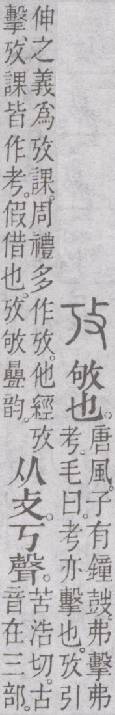 攷 敂也。
唐風。子有鐘鼓。弗擊弗
考。毛曰。考亦擊也。攷引
伸之義爲攷課。周禮多作攷。他經攷
擊攷課皆作考。假借也。攷敂曡韵。
从攴。丂聲。
苦浩切。古
音在三部。